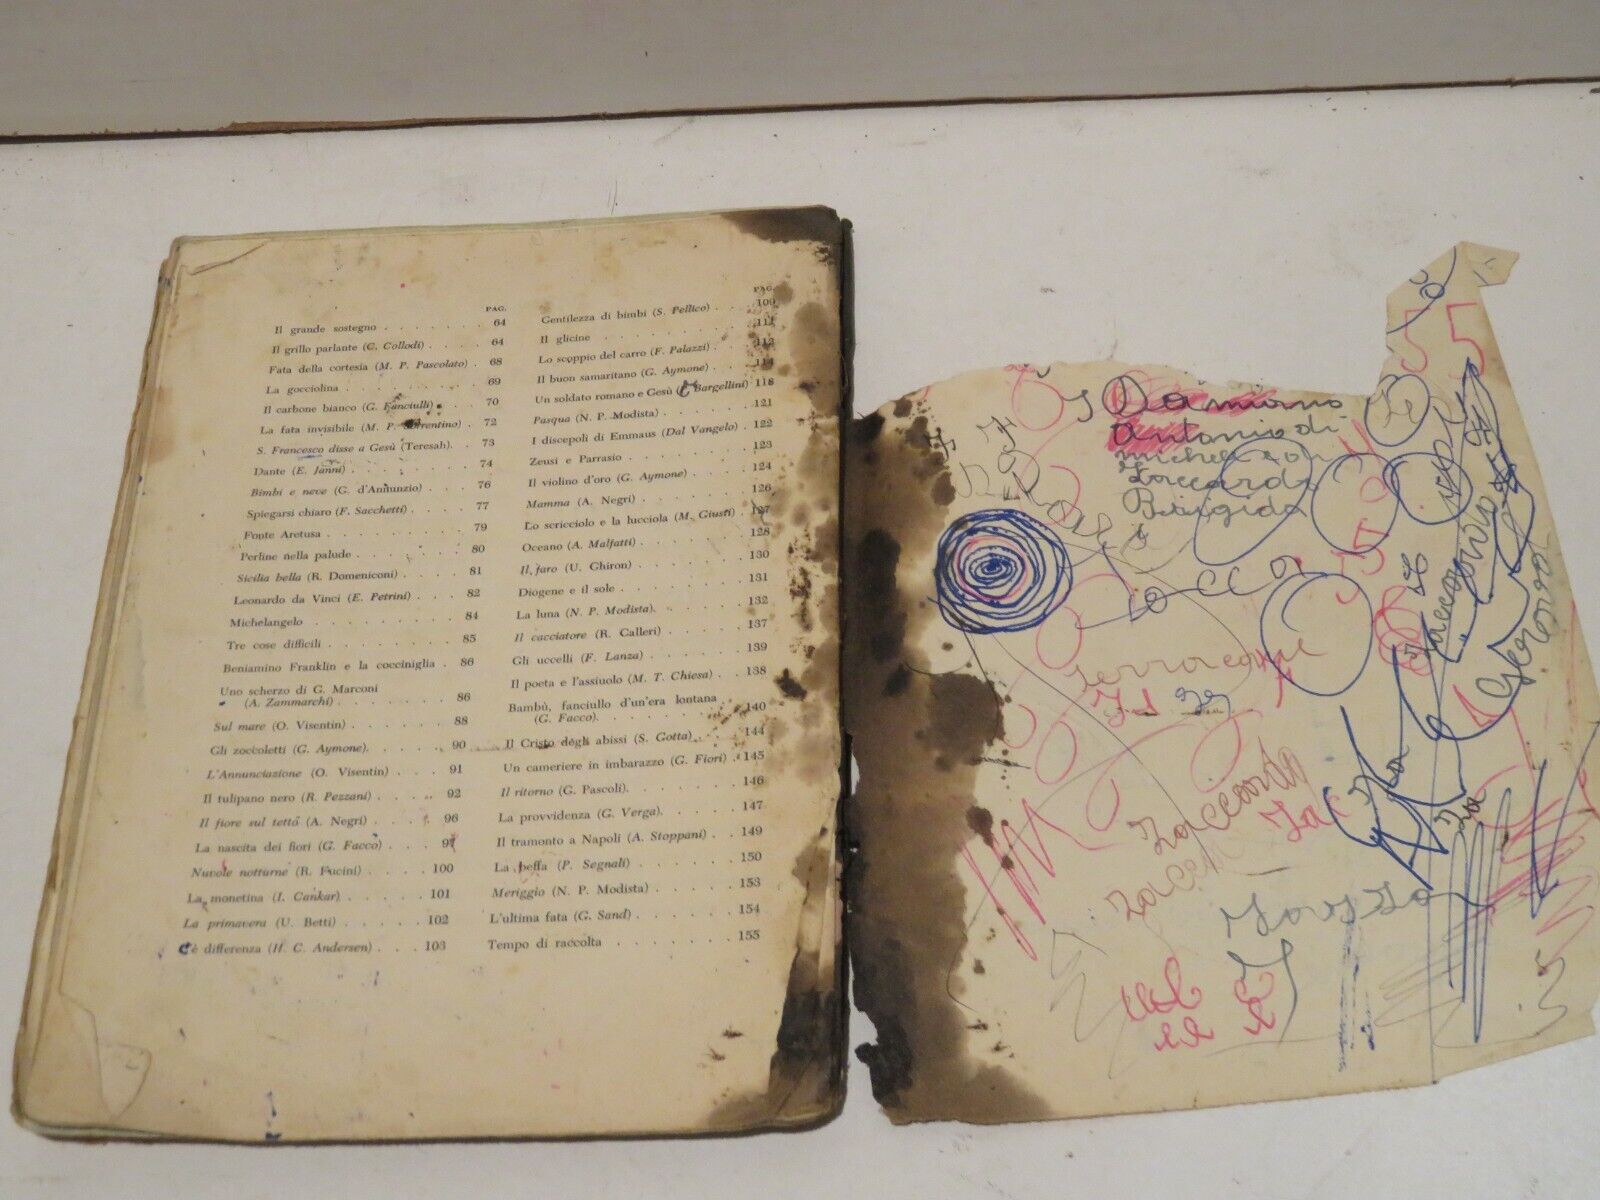 PAG.
Il grande sostegno . . . . . . . 64
Il grillo parlante (C. Collodi) . . . . 64
Fata della cortesia (M. P. Pascolato) . 68
La gocciolina . . . . . . . . 69
Il carbone bianco (G. Fanciulli) . . . 70
La fata invisibile (M. P. Sorrentino) . 72
S. Francesco disse a Gesù (Teresah). . 73
Dante (E. Janni) . . . . . . . 74
Bimbi e neve (G. d'Annunzio) . . . 76
Spiegarsi chiaro (F. Sacchetti) . . . . 77
Fonte Aretusa . . . . . . . . 79
Perline nella palude . . . . . . 80
Sicilia bella (R. Domeniconi) . . . . 81
Leonardo da Vinci (E. Petrini) . . . 82
Michelangelo . . . . . . . . 84
Tre cose difficili . . . . . . . 85
Beniamino Franklin e la cocciniglia . 86
Uno scherzo di G. Marconi
(A. Zammarchi) . . . . . . . 86
Sul mare (O. Visentin) . . . . . . 88
Gli zoccoletti (G. Aymone). . . . . 90
L'Annunciazione (O. Visentin) . . . 91
Il tulipano nero (R. Pezzani) . . . . 92
Il fiore sul tetto (A. Negri) . . . . 96
La nascita dei fiori (G. Facco) . . . 97
Nuvole notturne (R. Fucini) . . . . 100
La monetina (I. Cankar) . . . . . 101
La primavera (U. Betti) . . . . . 102
C'è differenza (H. C. Andersen) . . . 103
PAG.
Gentilezza di bimbi (S. Pellico) . . . 109
Il glicine . . . . . . . . . 111
Lo scoppio del carro (F. Palazzi) . . . 112
Il buon samaritano (G. Aymone) . . . 114
Un soldato romano e Gesù (C. Bargellini) 118
Pasqua (N. P. Modista) . . . . . 121
I discepoli di Emmaus (Dal Vangelo) . 122
Zeusi e Parrasio . . . . . . . 123
Il violino d'oro (G. Aymone) . . . . 124
Mamma (A. Negri) . . . . . . 126
Lo scricciolo e la lucciola (M. Giusti) . 127
Oceano (A. Malfatti) . . . . . . 128
Il faro (U. Ghiron) . . . . . . 130
Diogene e il sole . . . . . . . 131
La luna (N. P. Modista). . . . . . 132
Il cacciatore (R. Calleri) . . . . . 137
Gli uccelli (F. Lanza) . . . . . . 139
Il poeta e l'assiuolo (M. T. Chiesa) . . 138
Bambù, fanciullo d'un'era lontana
(G. Facco). . . . . . . . . 140
Il Cristo degli abissi (S. Gotta) . . . . 144
Un cameriere in imbarazzo (G. Fiori) . 145
Il ritorno (G. Pascoli). . . . . . . 146
La provvidenza (G. Verga). . . . . 147
Il tramonto a Napoli (A. Stoppani) . . 149
La beffa (P. Segnali) . . . . . . 150
Meriggio (N. P. Modista) . . . . . 153
L'ultima fata (G. Sand) . . . . . 154
Tempo di raccolta . . . . . . . 155
Damiano
Antonio di
Zaccardo
Brigida
Zaccardo